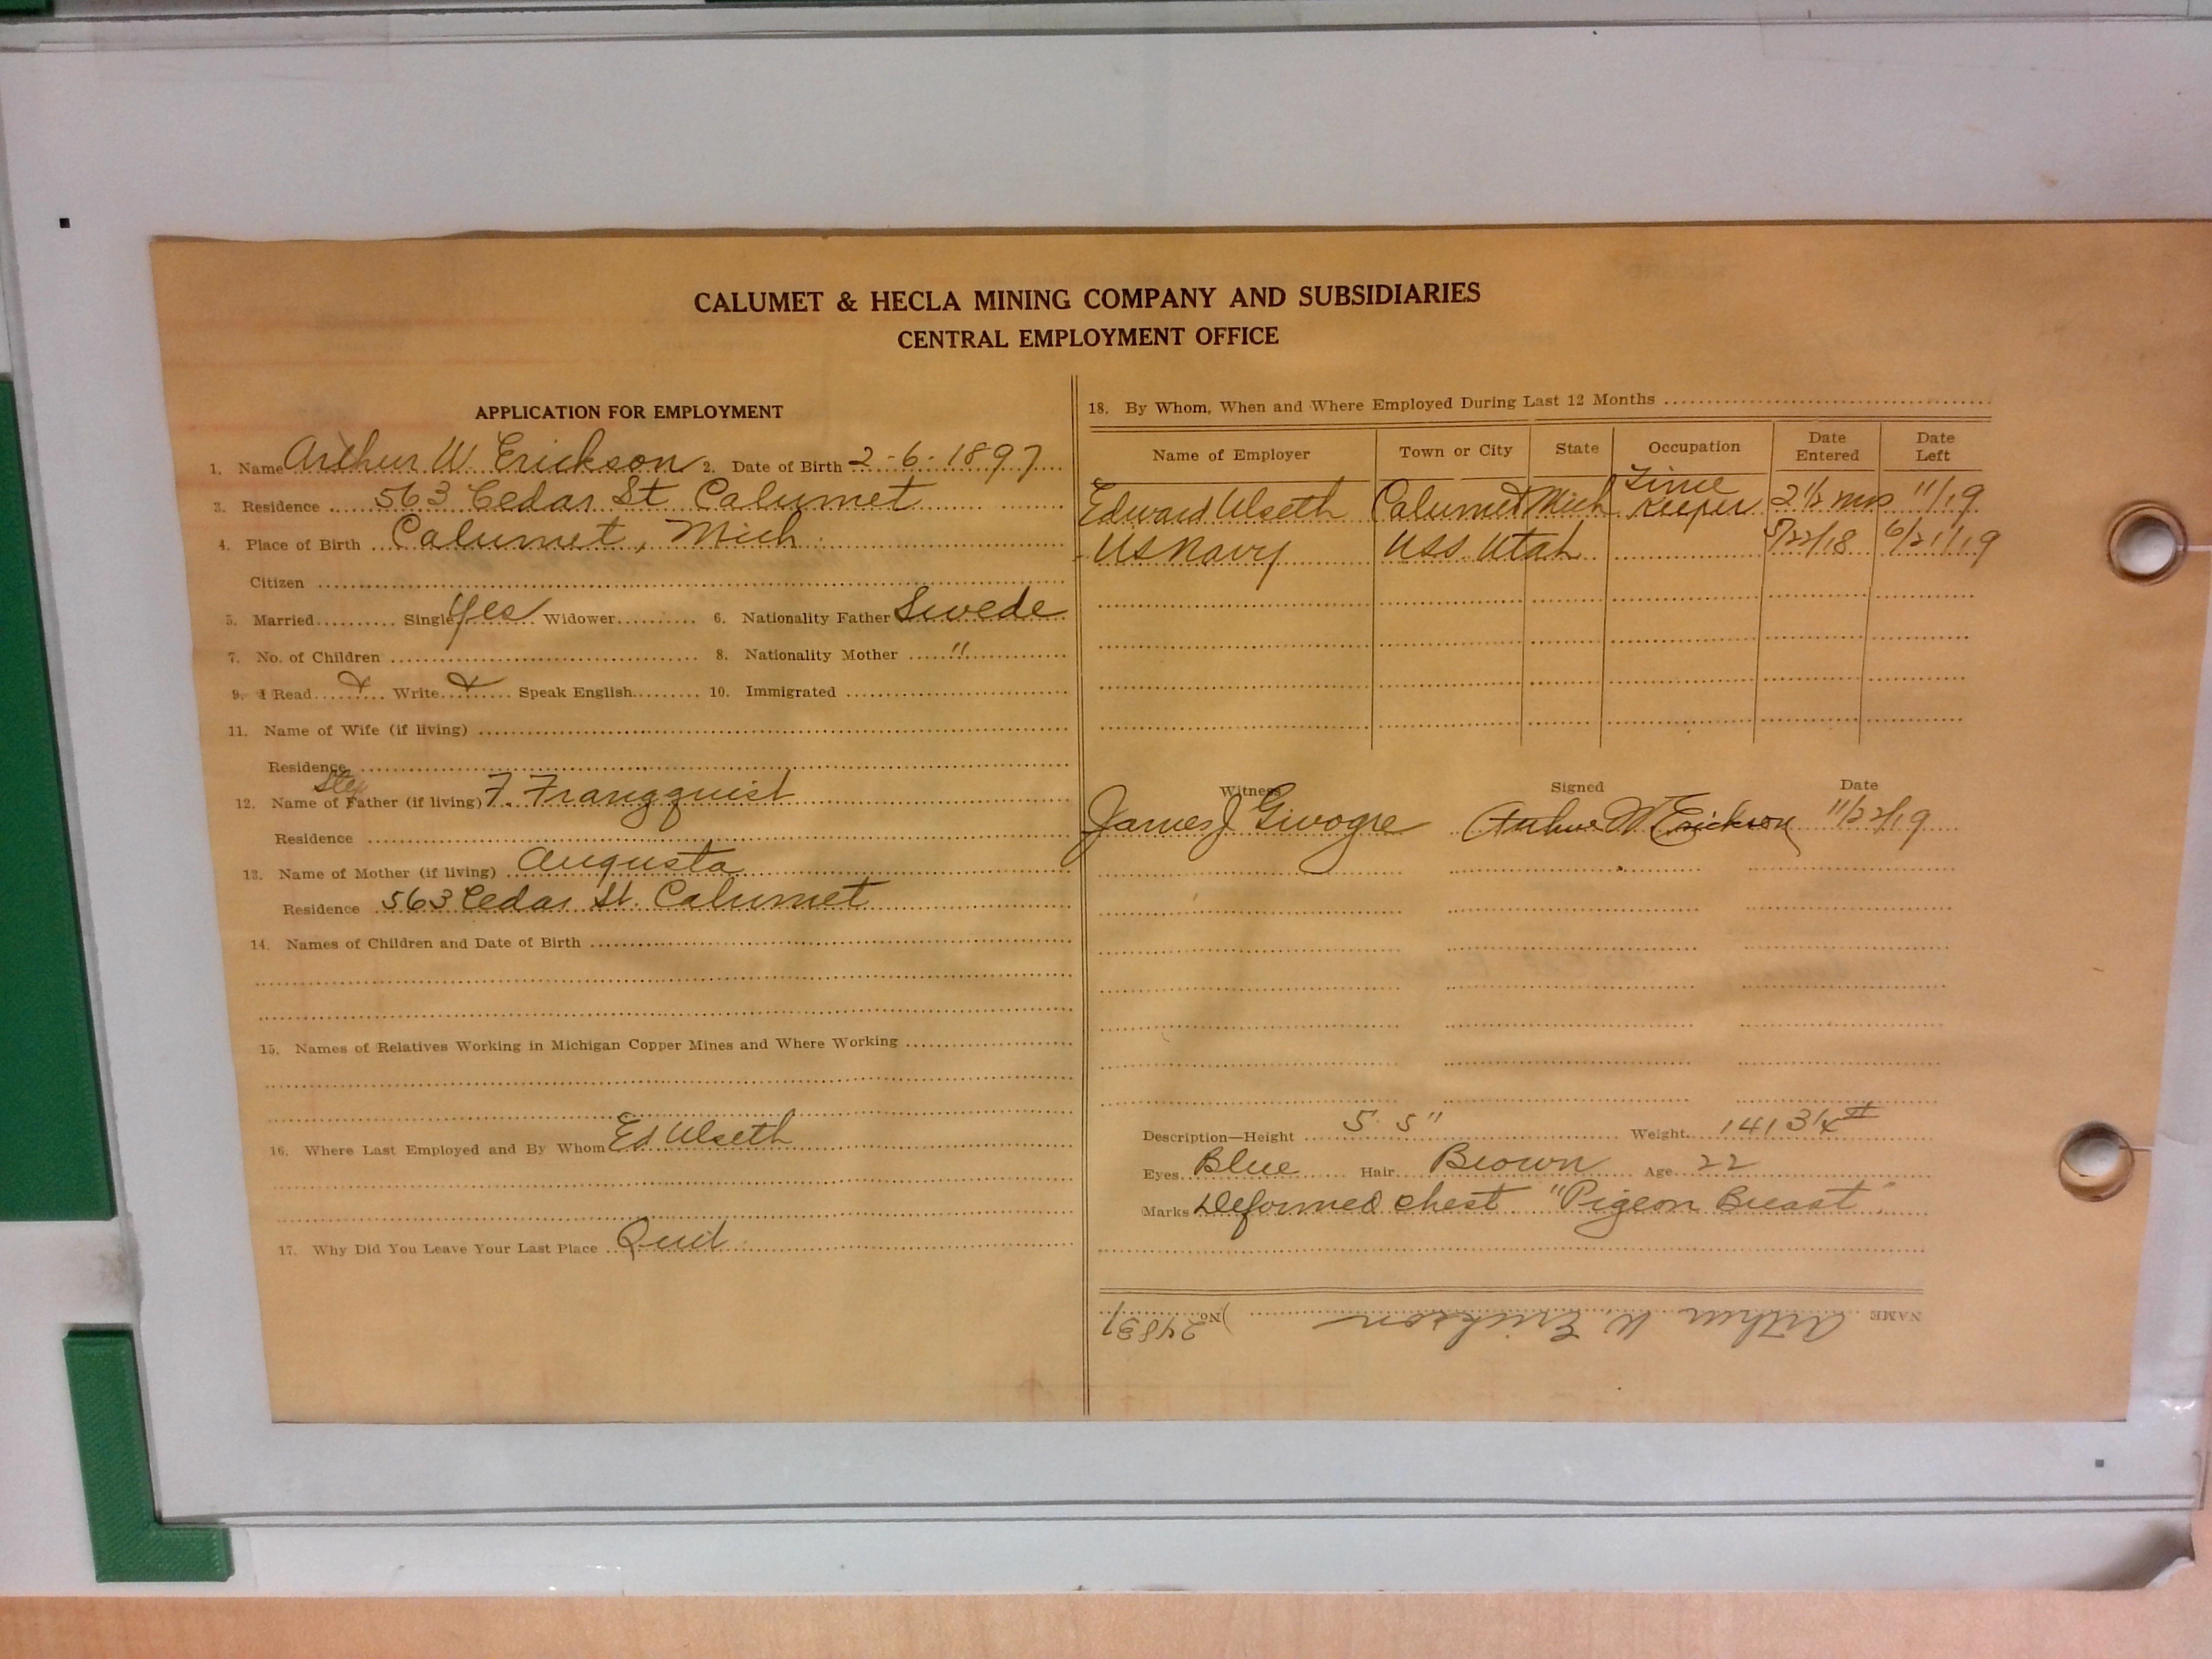 CALUMET & HECLA MINING COMPANY AND SUBSIDIARIES
CENTRAL EMPLOYMENT OFFICE
APPLICATION FOR EMPLOYMENT
1. Name Arthur W. Erickson 2. Date of Birth 2-6-1897
3. Residence 563 Cedar St Calumet
4. Place of Birth Calumet, Mich
Citizen
5. Married Single Yes Widower 6. Nationality Father Swede
7. No. of Children 8. Nationality Mother "
9. Read Write Speak English 10. Immigrated
11. Name of Wife (if living)
Residence
Step
12. Name of Father (if living) F.
Residence
13. Name of Mother (if living) Augusta
Residence 563 Cedar St. Calumet
14. Names of Children and Date of Birth
15. Names of Relatives Working in Michigan Copper Mines and Where Working
16. Where Last Employed and By Whom Ed Ulseth
17. Why Did You Leave Your Last Place Quit
18. By Whom, When and Where Employed During Last 12 Months
Name of Employer Town or City State Occupation Date Entered Date Left
Edward Ulseth Calumet Mich Time Keeper 2 1/2 mos 11/19
US Navy USS Utah 5/22/18 6/21/19
Witness Signed Date
James J Arthur W. Erickson 11/22/19
Description—Height 5' 5" Weight 141 3/4 #
Eyes Blue Hair Brown Age 22
Marks Deformed chest "Pigeon Breast"
NAME Arthur W. Erickson No.